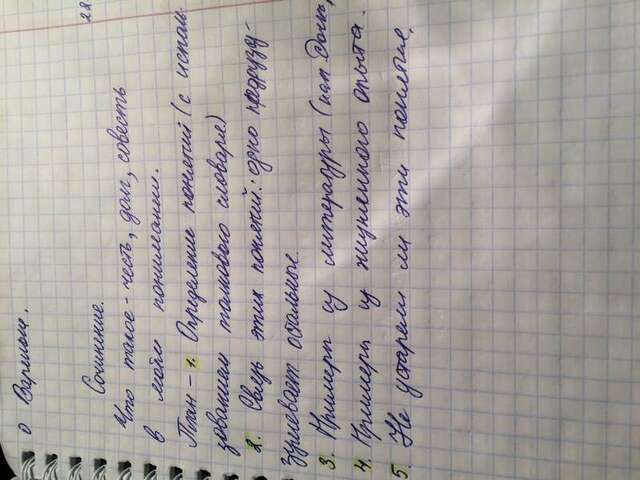 О Варшаве.
22
Сочинение.
Что такое - честь, долг, совесть
в моём понимании.
План - 1. Определение понятий (с исполь-
зованием толкового словаря)
2. Связь этих понятий: одно
зумевает остальные.
3. Примеры из литературы (кап.
4. Примеры из жизненного опыта.
5. Не устарели ли эти понятия.